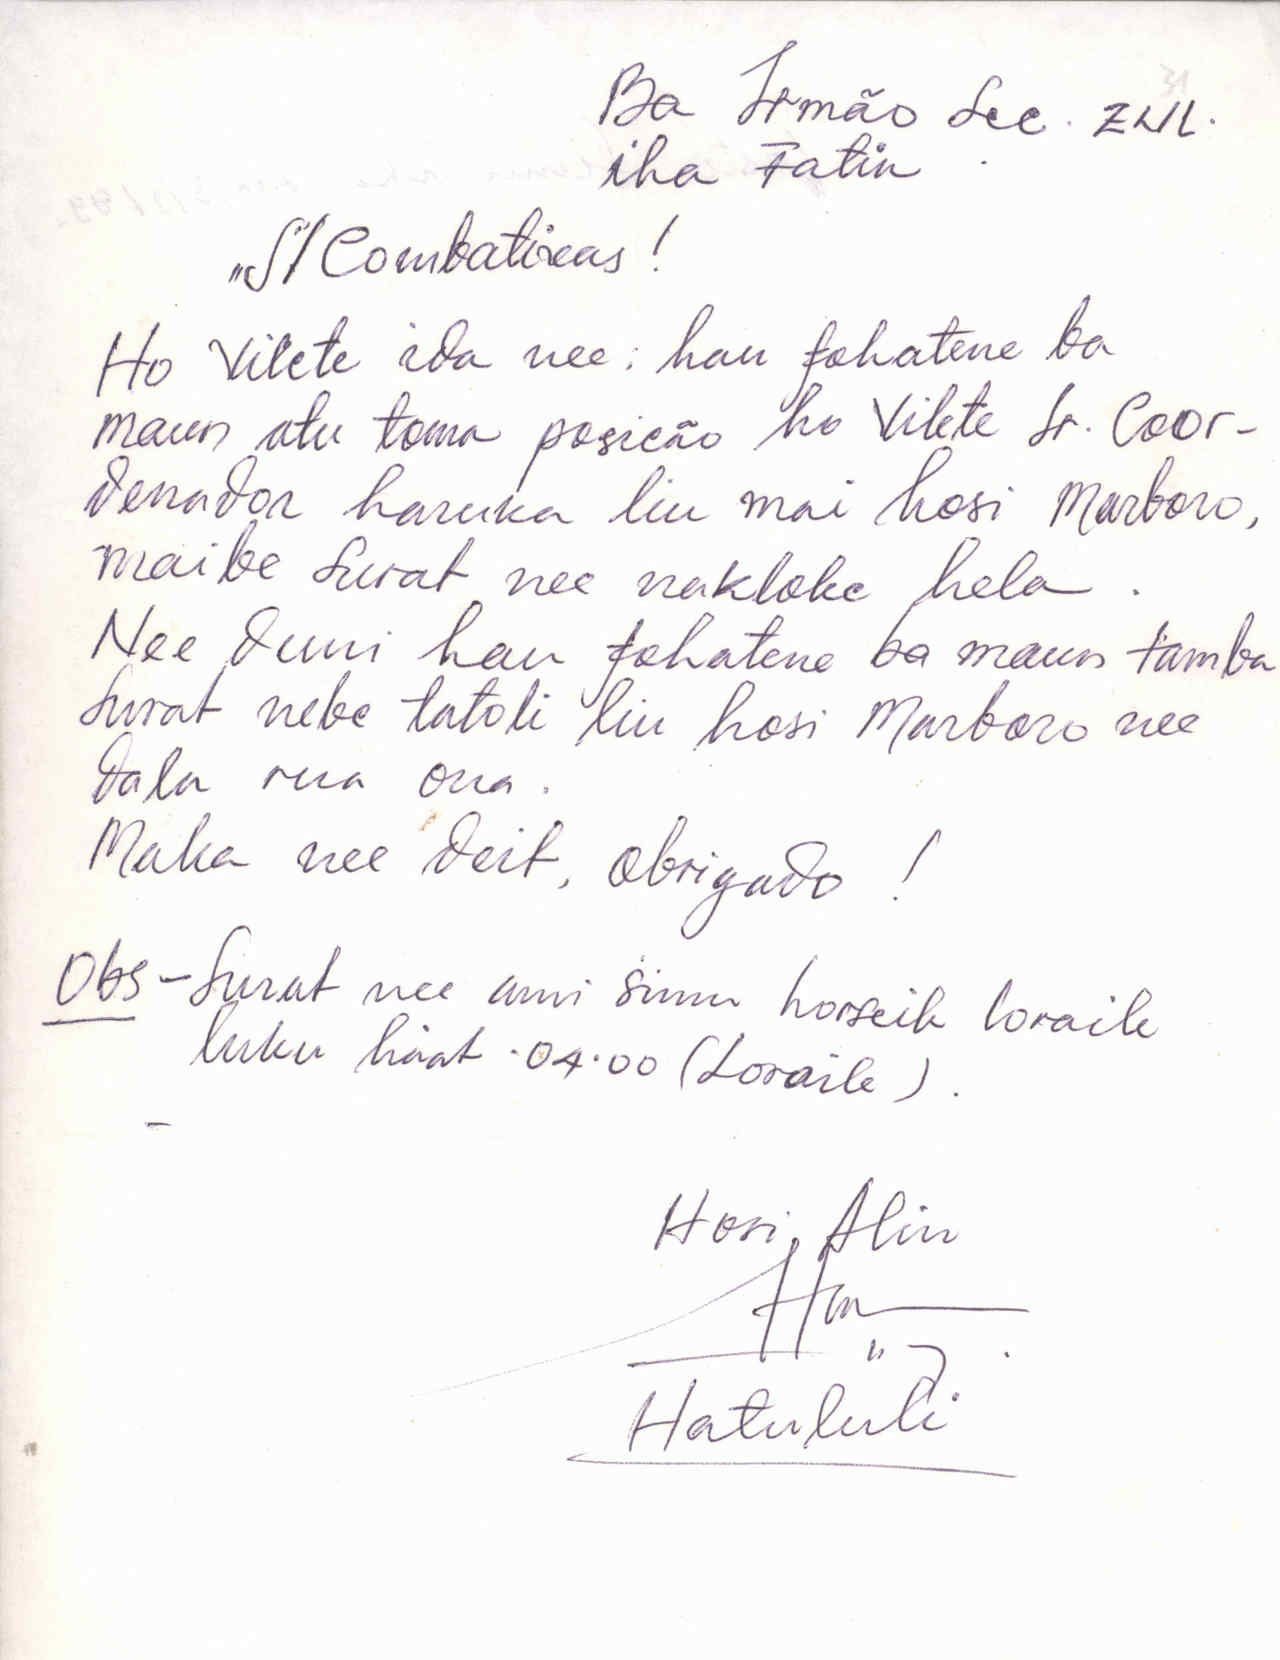 Ba Irmão Sec. ZNL.
iha Fatin
"S/Combativas!
Ho Vilete ida nee: hau fohatene ba
maun atu toma posicão ho Vilete Sr. Coor-
denador haruka liu mai hosi Marboro,
maibe Surat nee nakloke hela.
Nee duni hau fohatene ba maun tamba
Surat nebe tatoli liu hosi Marboro nee
dala rua ona.
Maka nee deit, obrigado!
Obs - Surat nee ami simu horseik loraik
luku háat .04.00 (Loraik).
-
Hosi Alin
Hatululi